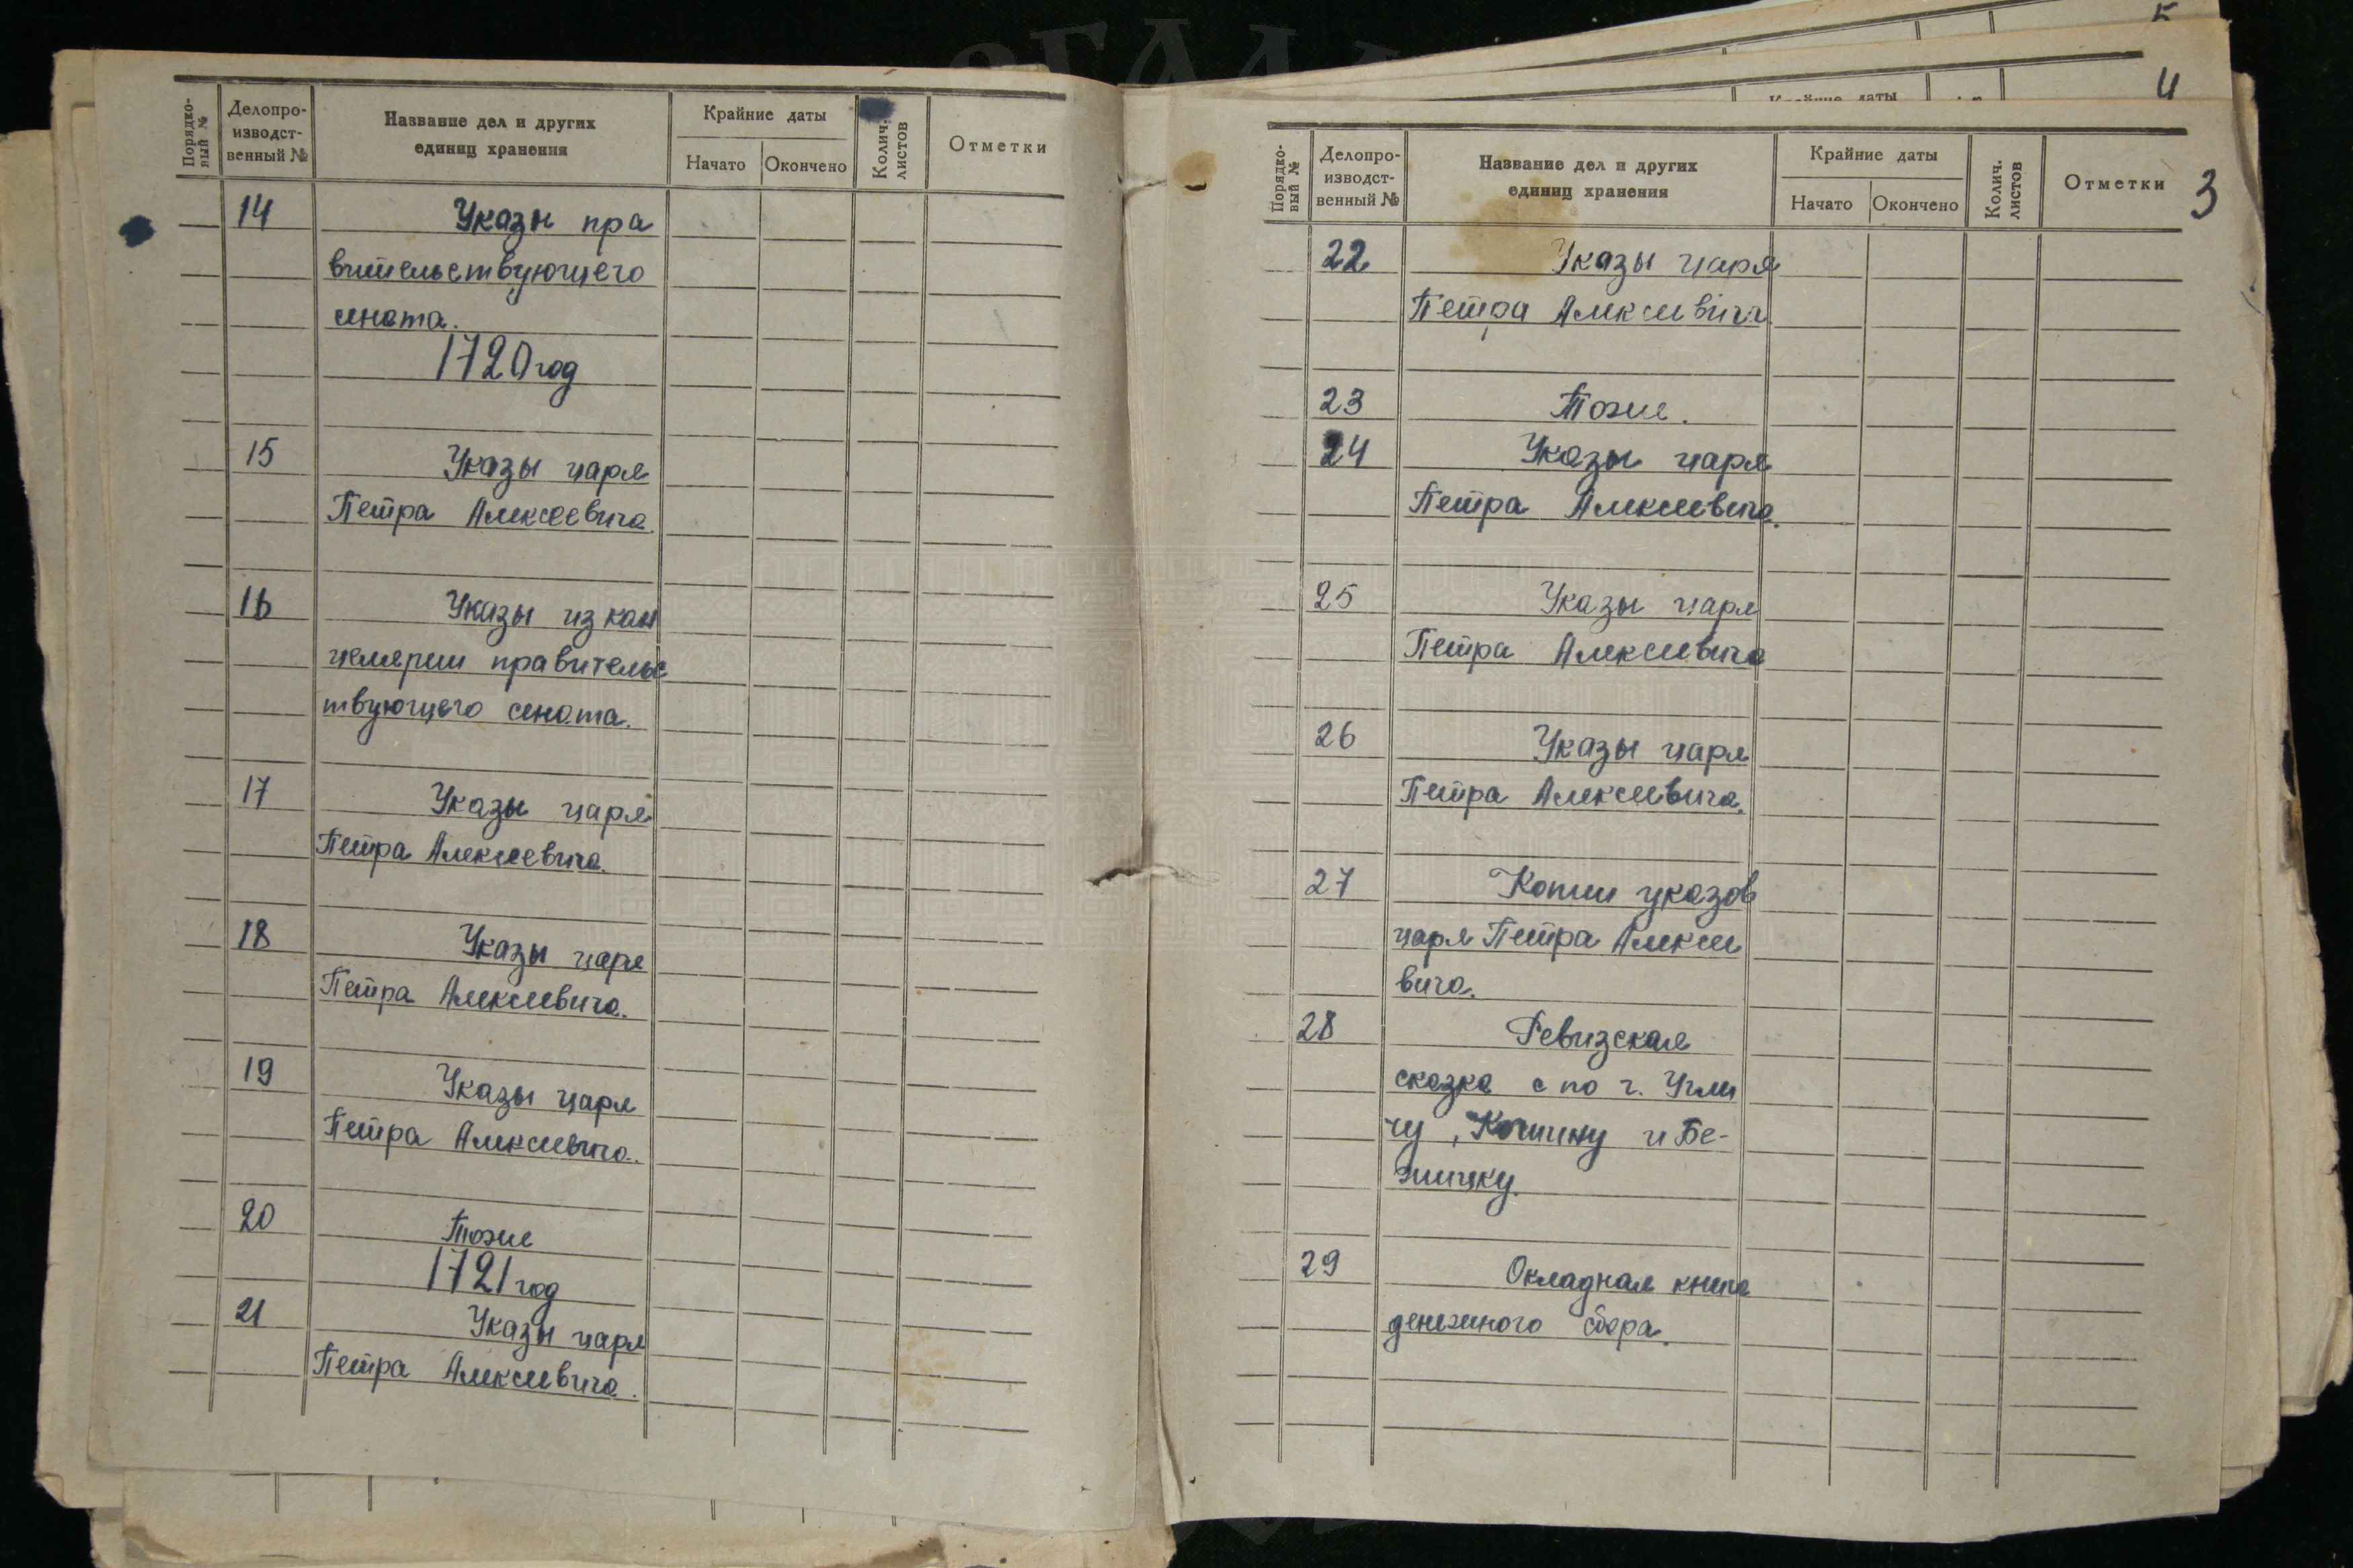 Порядко-
вый №
Делопро-
изводст-
венный №
Название дел и других
единиц хранения
Крайние даты
Начато
Окончено
Колич.
листов
Отметки
14 Указы пра
вительствующего
сената.
1720 год
15 Указы царя
Петра Алексеевича.
16 Указы из кан
целярии правительс
твующего сената.
17 Указы царя
Петра Алексеевича.
18 Указы царя
Петра Алексеевича.
19 Указы царя
Петра Алексеевича.
20 Тоже
1721 год
21 Указы царя
Петра Алексеевича.
5
4
Крайние даты
3
Порядко-
вый №
Делопро-
изводст-
венный №
Название дел и других
единиц хранения
Крайние даты
Начато
Окончено
Колич.
листов
Отметки
22 Указы царя
Петра Алексеевича
23 Тоже.
24 Указы царя
Петра Алексеевича.
25 Указы царя
Петра Алексеевича
26 Указы царя
Петра Алексеевича.
27 Копии указов
царя Петра Алексее
вича.
28 Ревизская
сказка с по г. Угли
чу, Кашину и Бе-
жицку.
29 Окладная книга
денежного сбора.